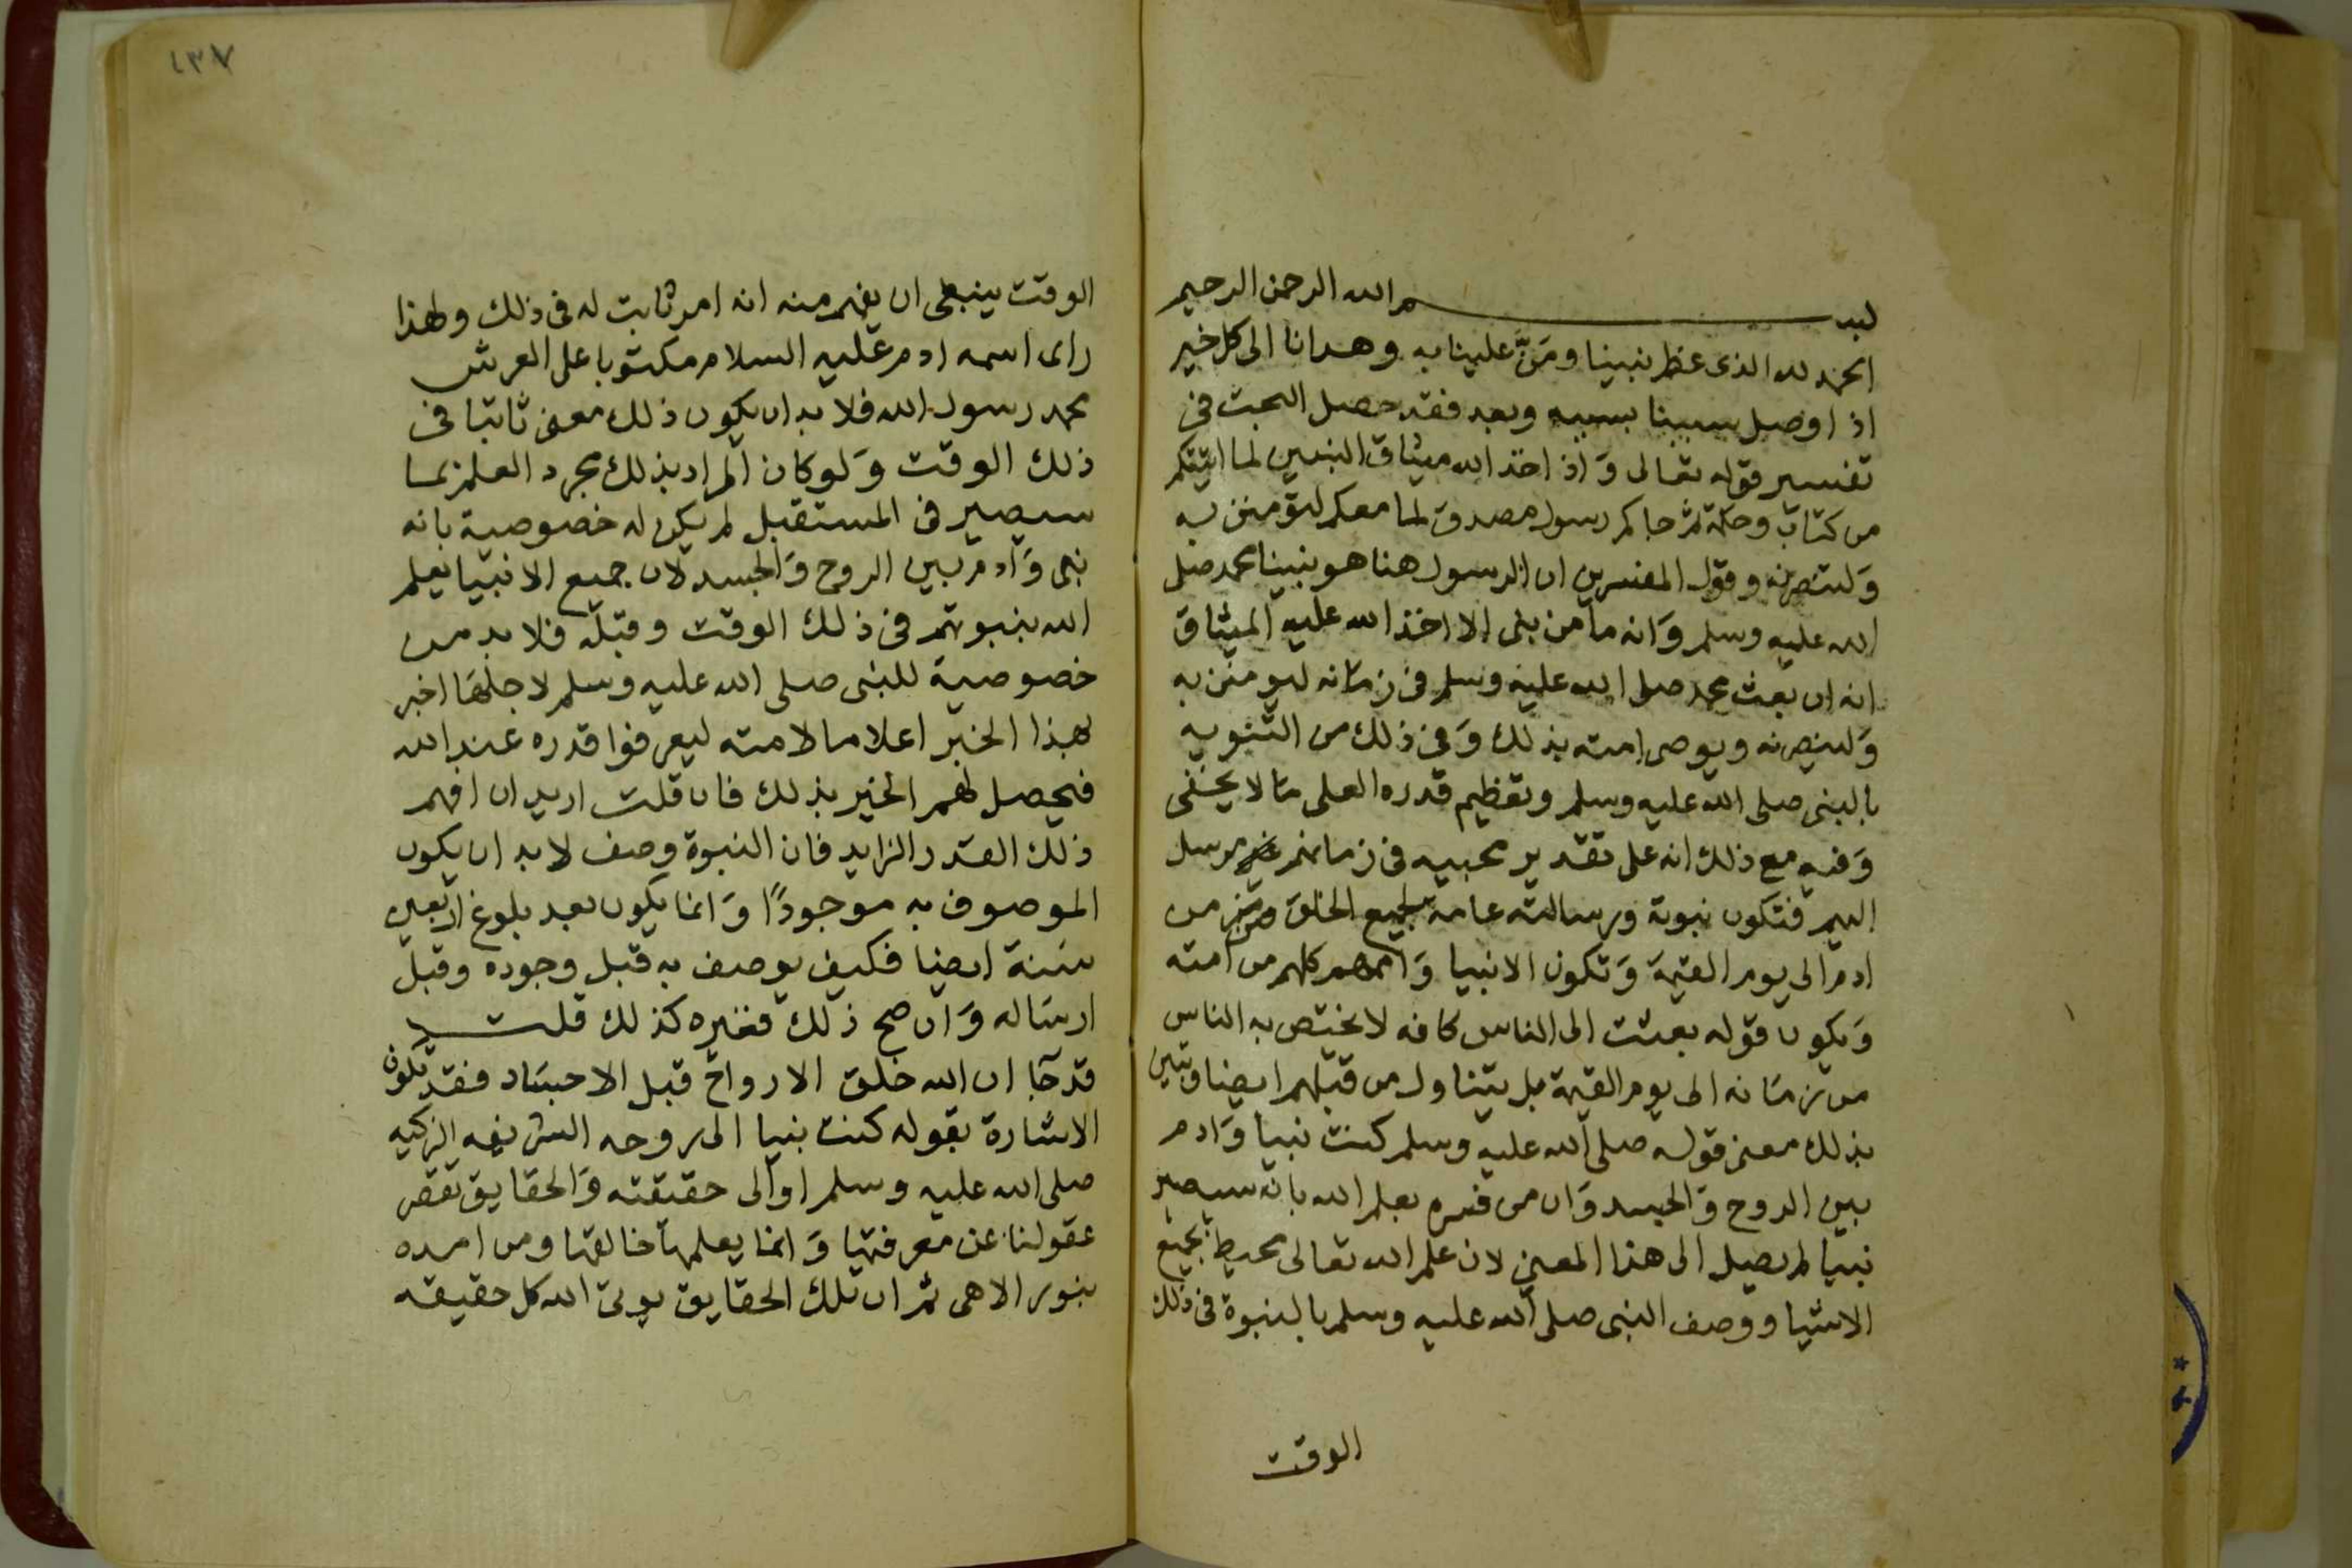 بسم الله الرحمن الرحيم
الحمد لله الذى عظم نبينا ومَنَّ علينا به وهدانا الى كل خير
اذ اوصل سببنا بسببه وبعد فقد حصل البحث فى
تفسير قوله تعالى وَاذ اخذ الله ميثاق النبيين لما اتيتكم
من كتاب وحكمة ثم جاكم رسول مصدق لما معكم لتؤمنن به
وَلتنصرنه وقول المفسرين ان الرسول هنا هو نبينا محمد صلى
الله عليه وسلم وَانه ما من نبى الا اخذ الله عليه الميثاق
انه ان بعث محمد صلى الله عليه وسلم فى زمانه ليومنن به
وَلينصرنه ويوصى امته بذلك وَفى ذلك من التنويه
بالنبى صلى الله عليه وسلم وتعظيم قدره العلى مَا لا يخفى
وَفيه مع ذلك انه على تقدير مجييه فى زمانهم مرسل
اليهم فتكون نبوته ورسالته عامة لجميع الخلق من زمن
ادم الى يوم القيمة وَتكون الانبيا وَاممهم كلهم من امته
وَيكون قوله بعثت الى الناس كافه لا يختص به الناس
من زمَانه الى يوم القيمة بل يتناول من قبلهم ايضا وتبين
بذلك معنى قوله صلى الله عليه وسلم كنت نبيا وَادم
بين الروح وَالجسد وَان من فسره بعلم الله بانه سيصير
نبيا لم يصل الى هذا المعنى لان علم الله تعالى محيط بجميع
الاشيا ووصف النبى صلى الله عليه وسلم بالنبوة فى ذلك
الوقت
١٣٧
الوقت ينبغى ان يفهم منه انه امر ثابت له فى ذلك ولهذا
راى اسمه ادم عليه السلام مكتوبا على العرش
محمد رسول الله فلا بد ان يكون ذلك معنى ثابتا فى
ذلك الوقت وَلو كان المراد بذلك مجرد العلم بما
سيصير فى المستقبل لم يكن له خصوصية بانه
نبى وَادم بين الروح وَالجسد لان جميع الانبيا يعلم
الله بنبوتهم فى ذلك الوقت وقبله فلا بد من
خصوصية للنبى صلى الله عليه وسلم لاجلهَا اخبر
بهذا الخبر اعلاما لامته ليعرفوا قدره عند الله
فيحصل لهم الخير بذلك فان قلت اريد ان افهم
ذلك القدر الزايد فان النبوة وصف لا بد ان يكون
الموصوف به موجودًا وَانما يكون بعد بلوغ اربعين
سَنة ايضا فكيف يوصف به قبل وجوده وقبل
ارسَاله وَان صح ذلك فغيره كذلك قلت
قد جَا ان الله خلق الارواح قبل الاجسَاد فقد تكون
الاشارة بقوله كنت نبيا الى روحه الشريفه الزكيه
صلى الله عليه وسلم او الى حقيقته وَالحقايق تقصر
عقولنا عن معرفتها وَانما يعلمها خالقها ومن امده
بنور الاهى ثم ان تلك الحقايق يوتى الله كل حقيقه